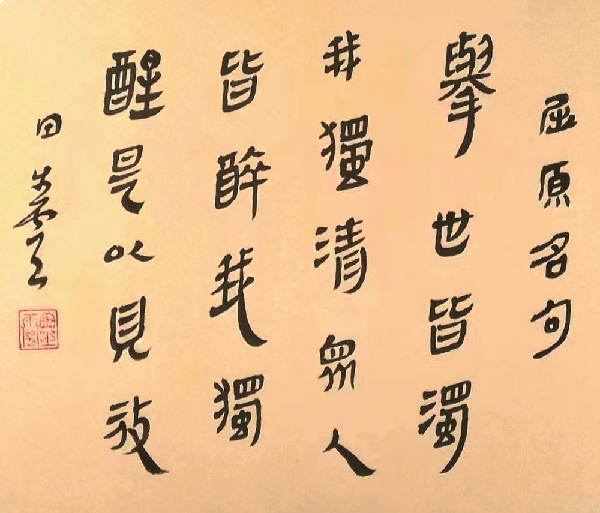 屈原名句
擧世皆濁
我獨清眾人
皆醉我獨
醒是以見放
田